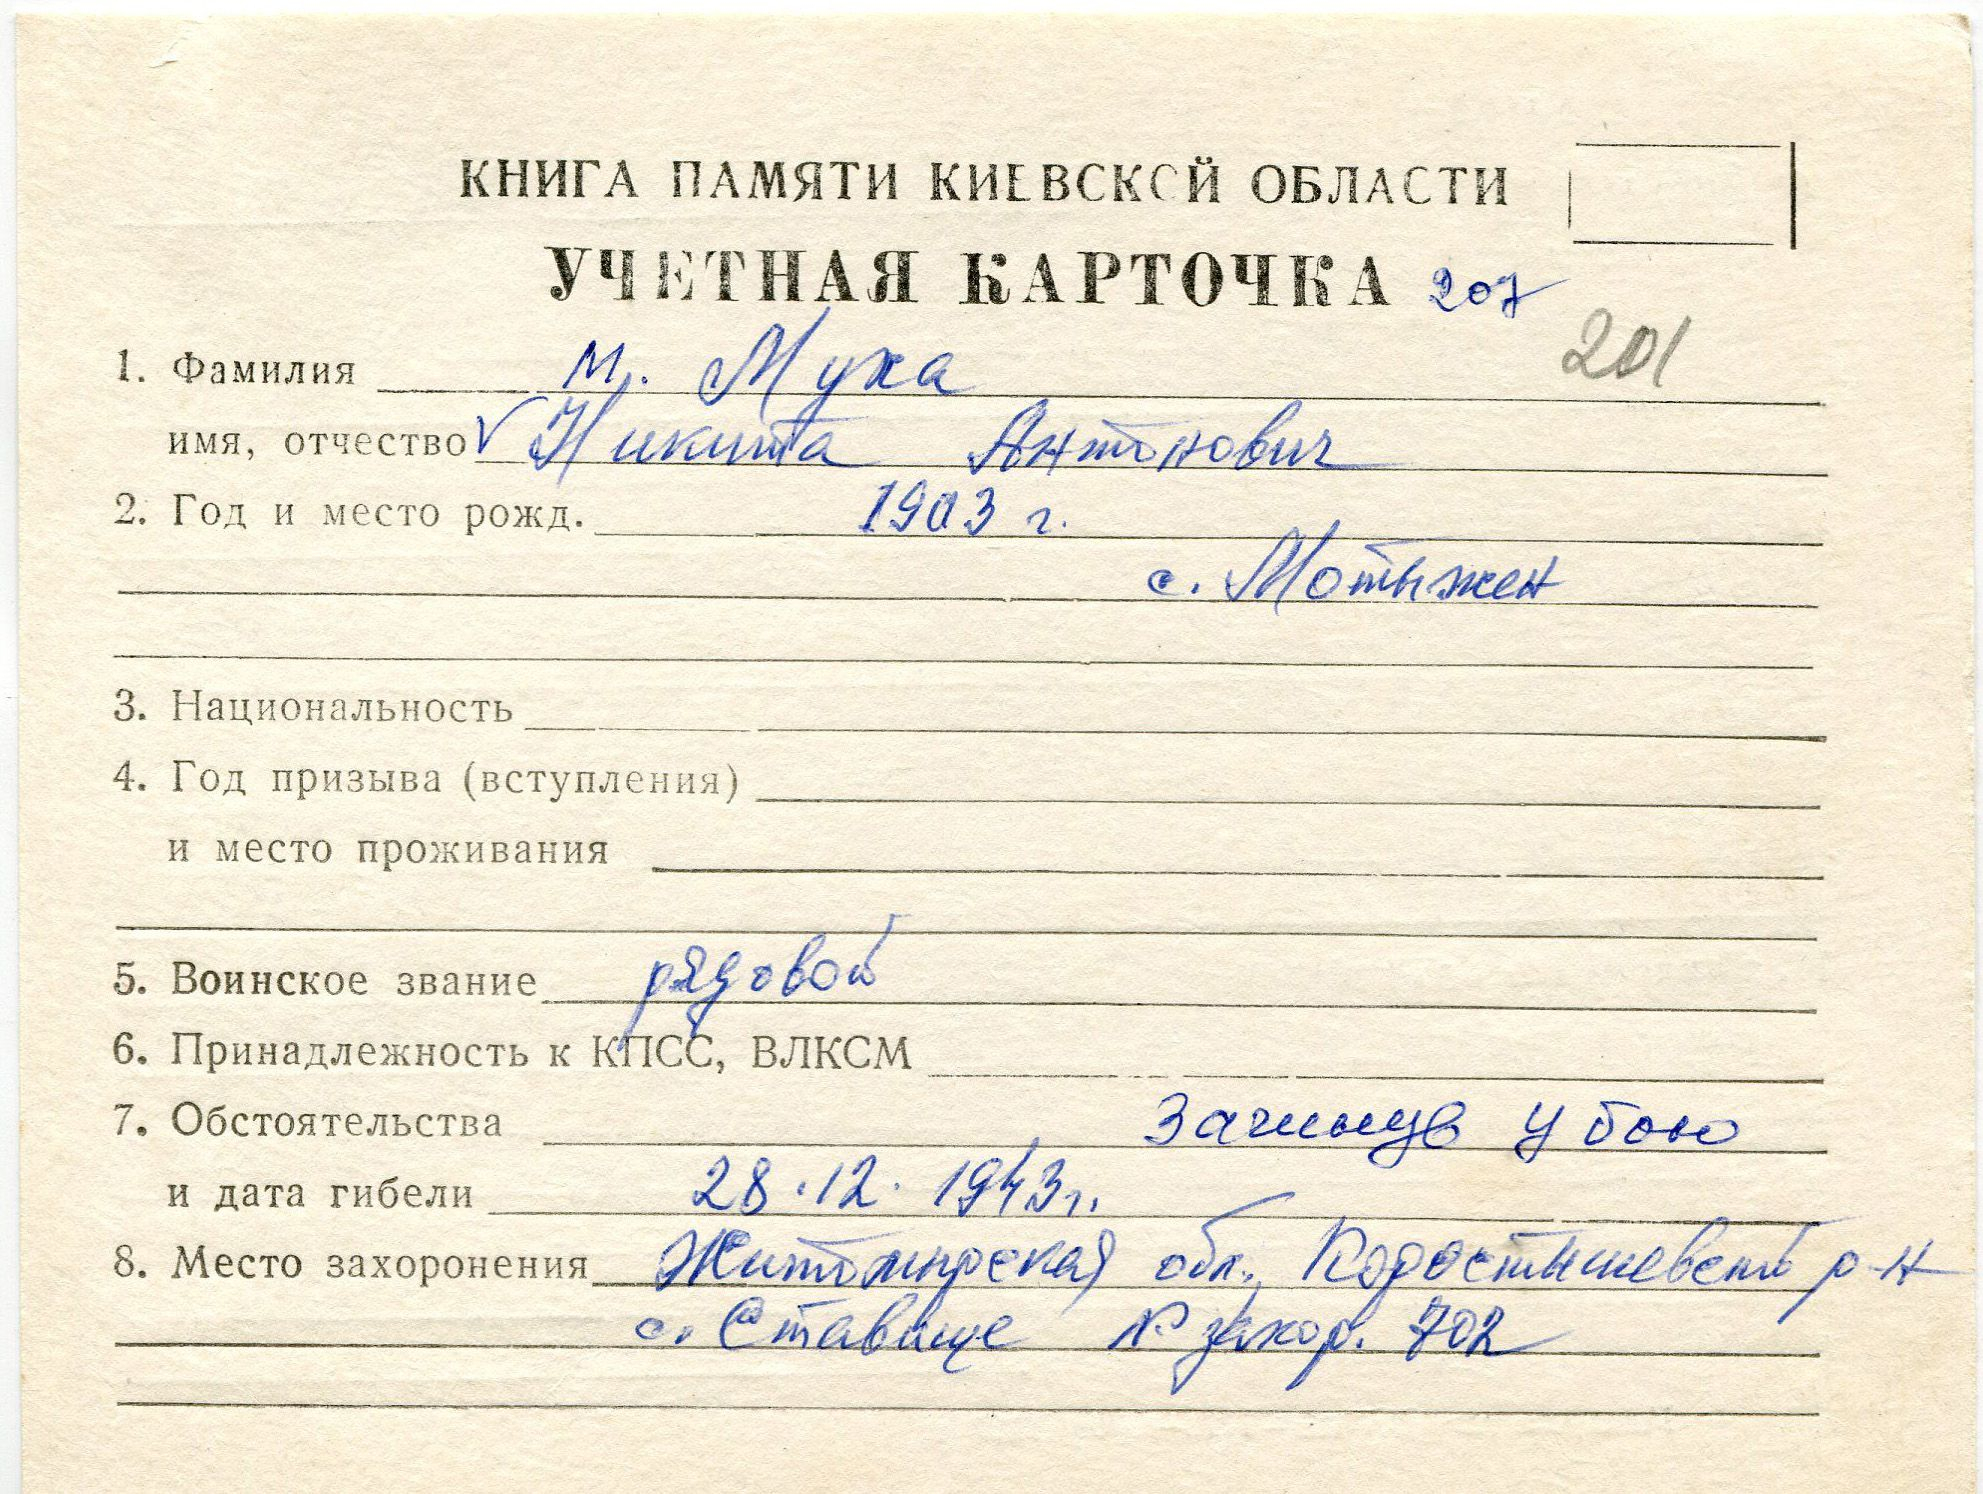 КНИГА ПАМЯТИ КИЕВСКОЙ ОБЛАСТИ
УЧЕТНАЯ КАРТОЧКА 207
201
1. Фамилия м. Муха
имя, отчество √ Никита Антонович
2. Год и место рожд. 1903 г.
с. Мотыжен
3. Национальность
4. Год призыва (вступления)
и место проживания
5. Воинское звание рядовой
6. Принадлежность к КПСС, ВЛКСМ
7. Обстоятельства Загинув у бою
и дата гибели 28.12.1943г.
8. Место захоронения Житомирская обл., Коростышевский р-н
с. Ставище № захор. 702